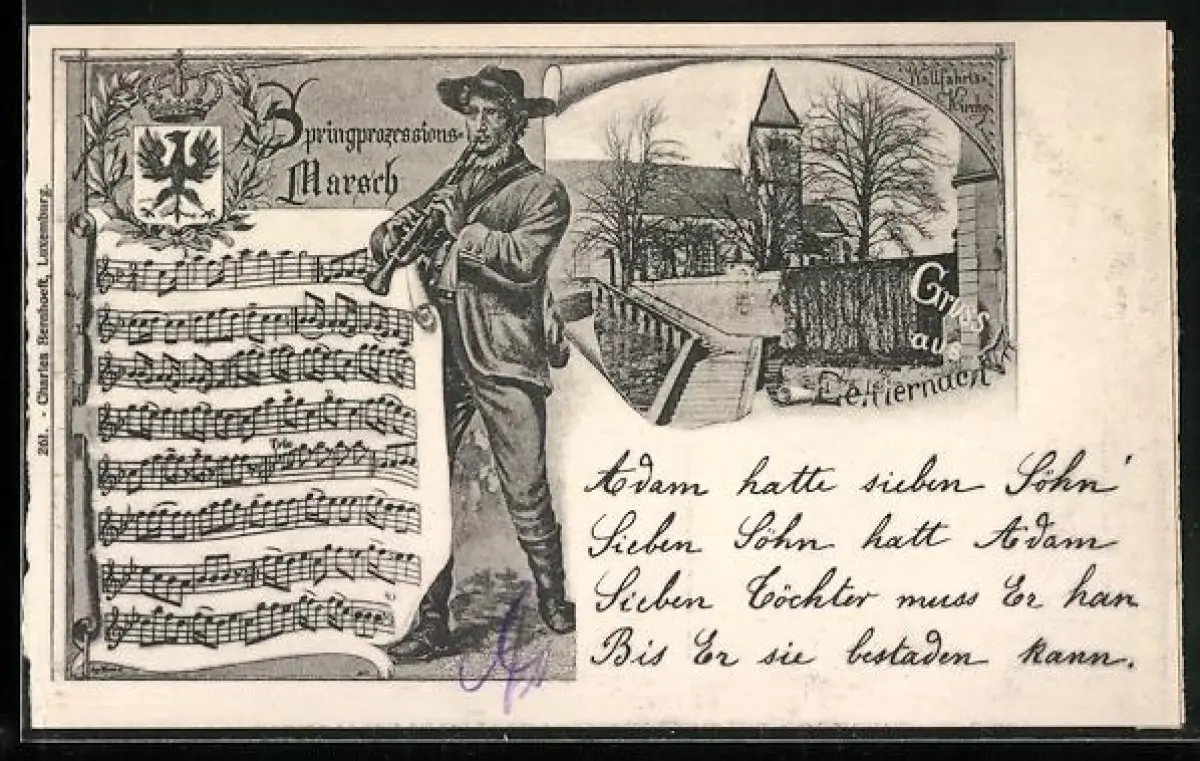 Springprozessions-
Marsch
Wallfahrts-
Kirche
Gruss
aus
Echternach
Trio
Adam hatte sieben Söhn'
Sieben Söhn hatt Adam
Sieben Töchter muss Er han
Bis Er sie bestaden kann.
261. - Charles Bernhoeft, Luxemburg.